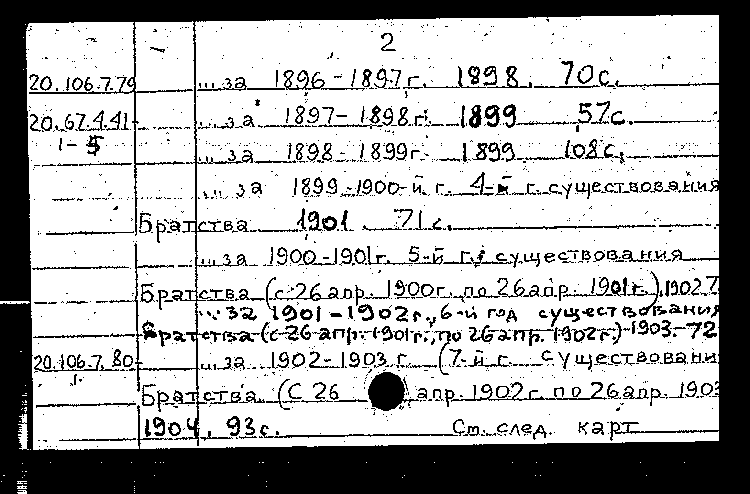 2
20.106.7.79 ... за 1896-1897г. 1898. 70с.
20.67.4.41- ... за 1897-1898г. 1899 57с.
1-5 ... за 1898-1899г. 1899 108с.
... за 1899-1900-й г. 4-й г. существования
Братства 1901. 71с.
... за 1900-1901г. 5-й г. существования
Братства (с 26 апр. 1900г. по 26 апр. 1901г.). 1902 7
... за 1901-1902г., 6-й год существования
Братства (с 26 апр. 1901г., по 26 апр. 1902г.) 1903.-72
20.106.7.80- ... за 1902-1903 г. (7-й г. существовани
1. Братства (С 26 апр. 1902г. по 26 апр. 1903
1904. 93с. См. след. карт